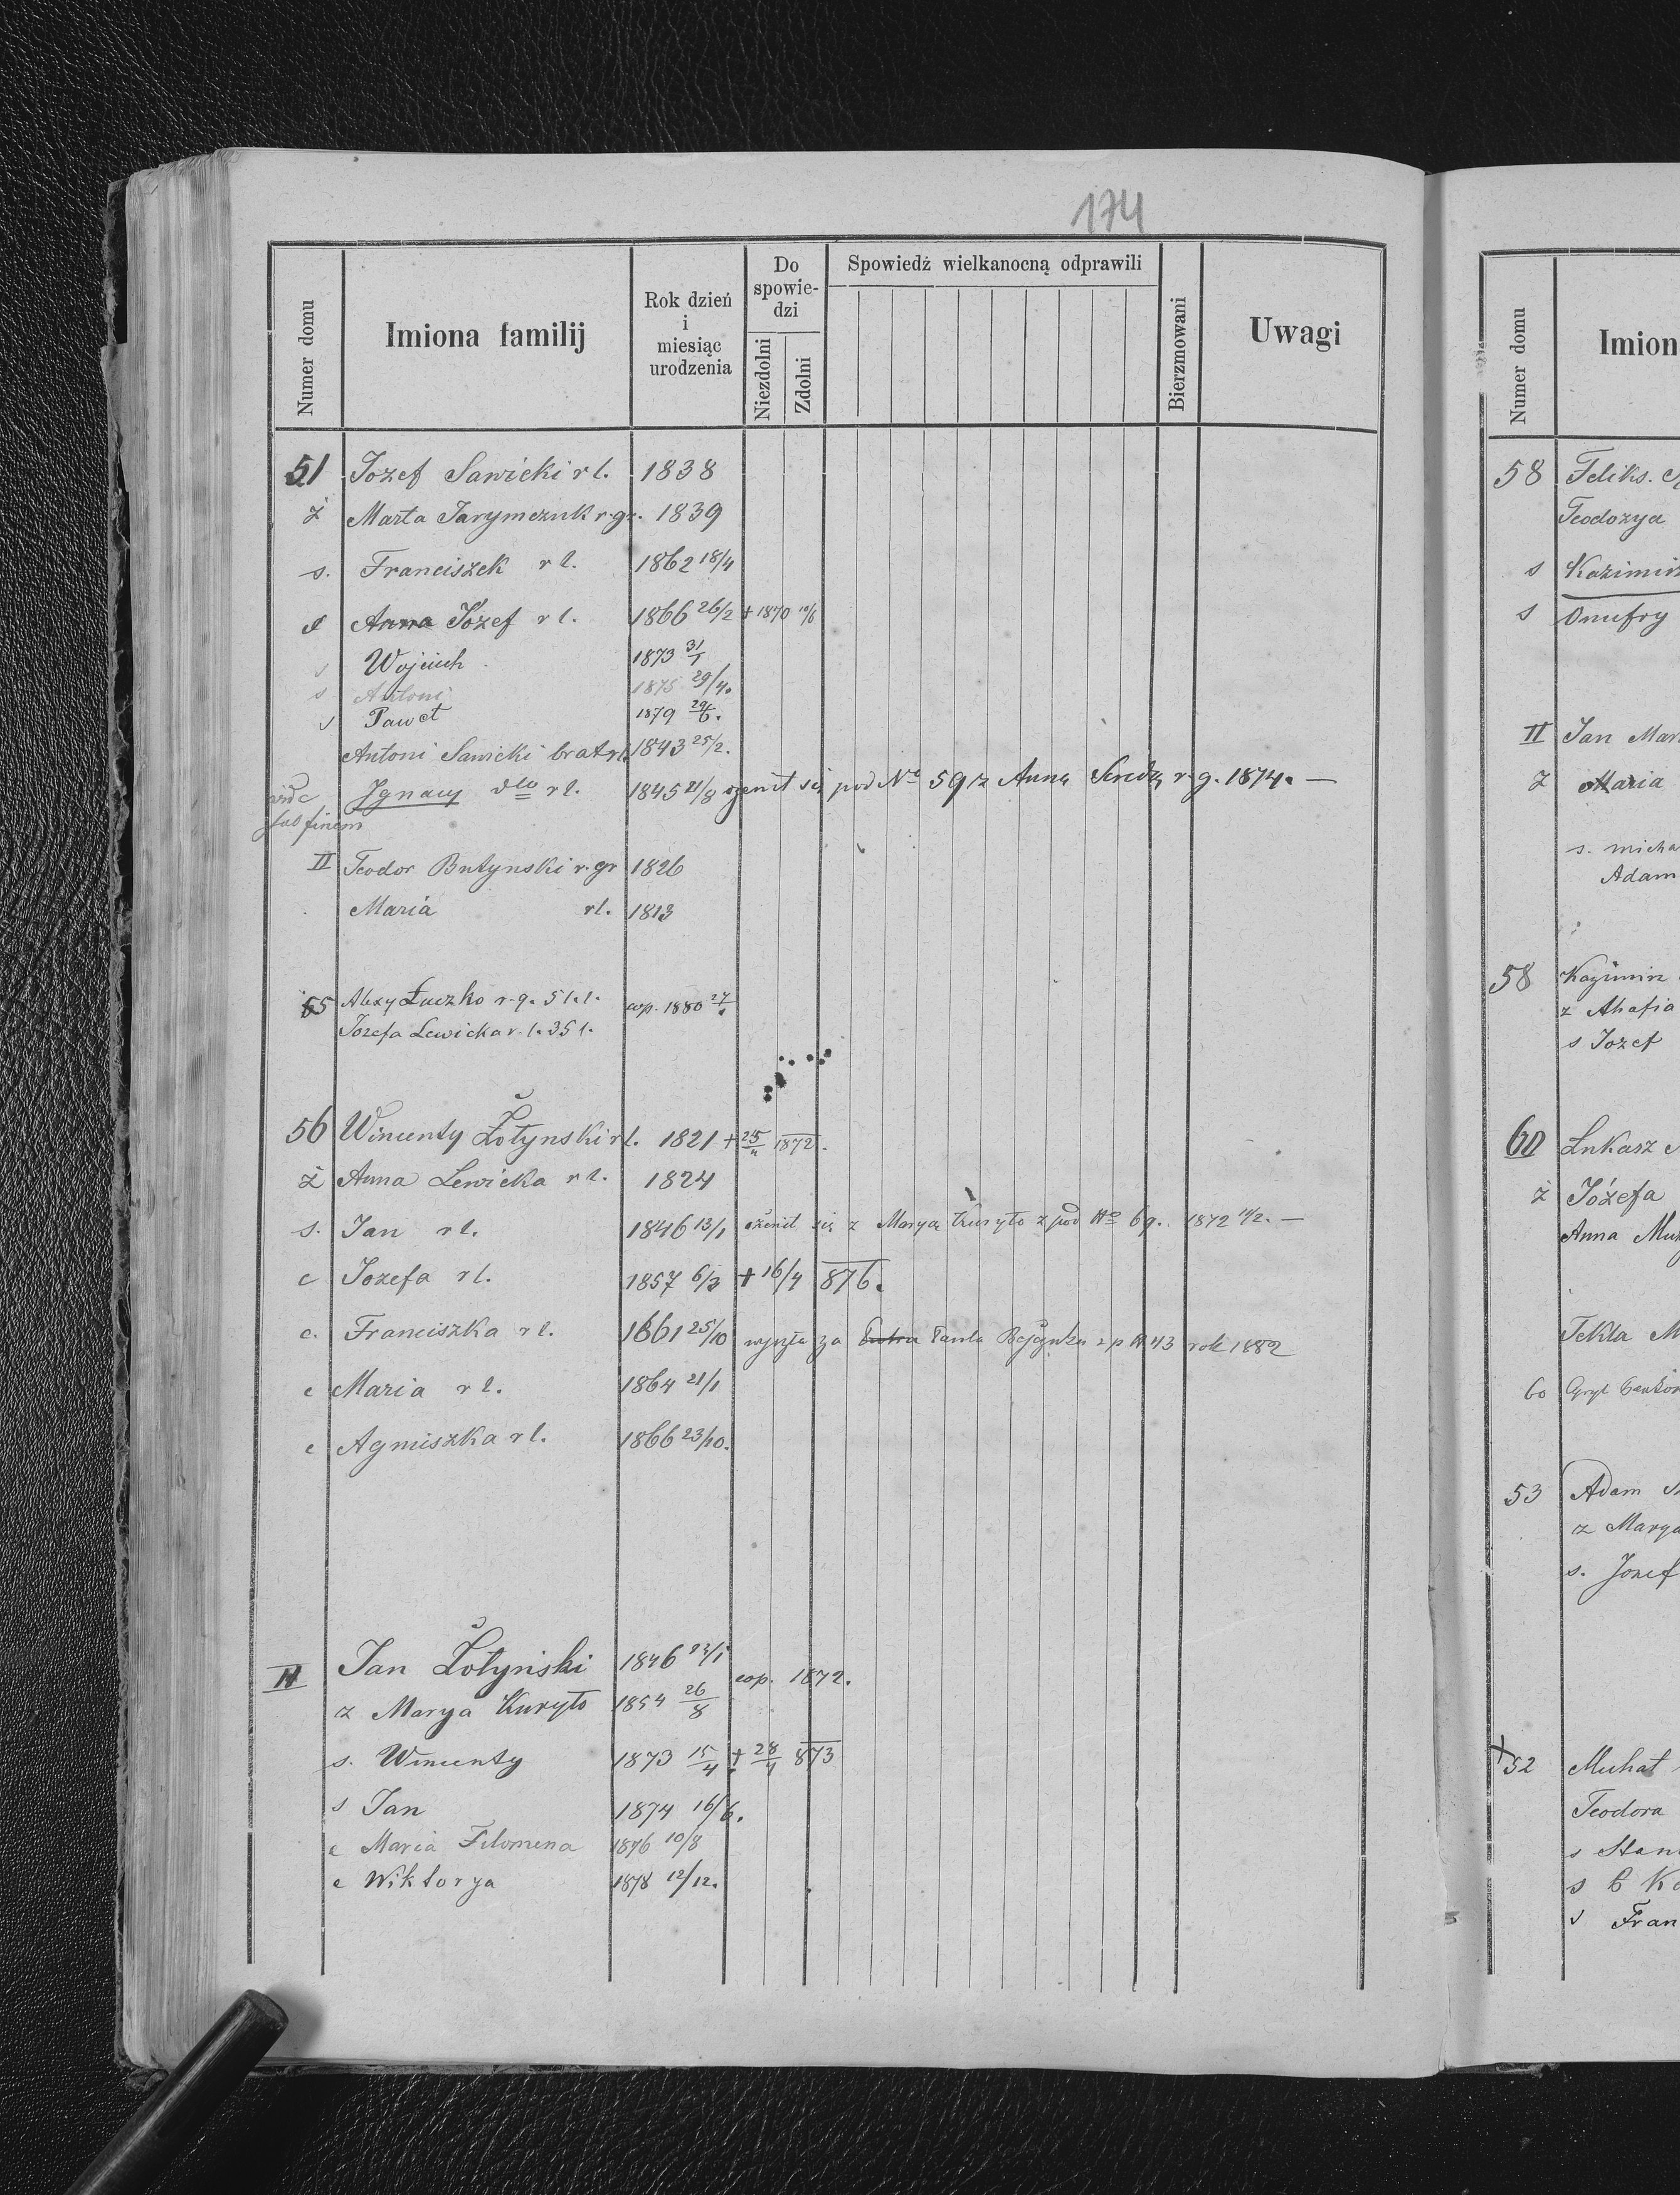 174
Numer domu
Imiona familij
Rok dzień i miesiąc urodzenia
Do spowiedzi
Niezdolni
Zdolni
Spowiedź wielkanocną odprawili
Bierzmowani
Uwagi
51 Jozef Sawicki r l. 1838
ż Marta Jarymczuk r. gr. 1839
s. Franciszek r l. 1862 18/4
s Anna Józef r l. 1866 26/2 + 1870 10/6
s Wojciech 1873 31/1
s Antoni 1875 29/4.
s Paweł 1879 29/6.
Antoni Sawicki brat rl. 1843 25/2.
vide Ignacy dto r l. 1845 21/8 ożenił się pod No 59 z Anną r. g. 1874. —
sub finem
II Teodor Butynski r. gr 1826
Maria rl. 1813
55 Alexy Łuczko r. g. 51. l. cop. 1880
Jozefa Lewicka r. l. 35 l.
56 Wincenty Żołynski rl. 1821 + 25/4 1872.
ż Anna Lewicka r l. 1824
s. Jan r l. 1846 13/1 ożenił się z Marya Kuryło z pod No 69. 1872 11/2. —
c Jozefa r l. 1857 6/3 + 16/4 876.
c. Franciszka r l. 1861 25/10 wyszła za Pawła z p N 43 rok 1882
c Maria r l. 1864 21/1
c Agniszka r l. 1866 23/10.
II Jan Żołyński 1846 13/1 cop. 1872.
z Marya Kuryło 1854 26/8
s. Wincenty 1873 15/4 + 28/4 873
s Jan 1874 16/6.
c Maria Filomena 1876 10/8
c Wiktorya 1878 12/12.
Numer domu
Imion
58 Feliks.
Teodozya
s Kazimirz
s Onufry
II Jan Mar
ż Maria
s. micha
Adam
58 Kazimirz
z Ahafia
s Jozef
60 Łukasz
ż Józefa
Anna Muz
Tekla M
60
53 Adam
z Marya
s. Jozef
+52 Michał
Teodora
s Stan
s
s Fran